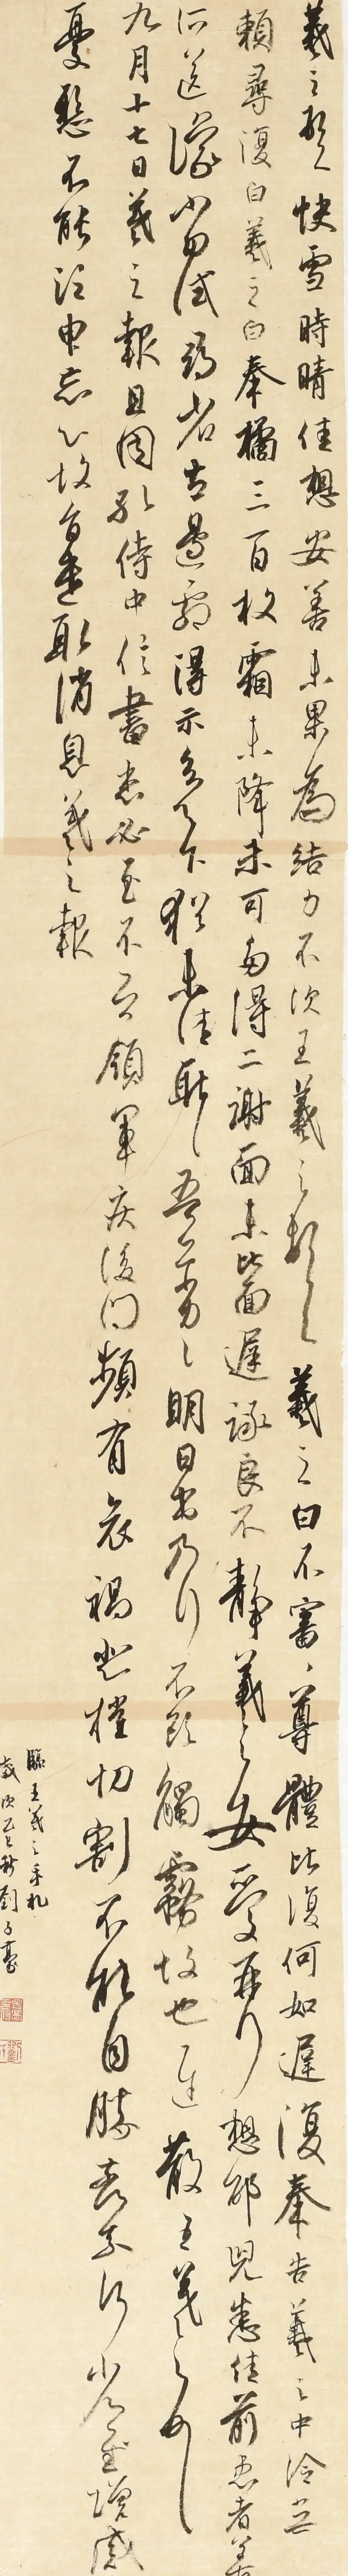 羲之頓首快雪時晴佳想安善未果為結力不次王羲之頓首羲之白不審尊體比復何如遲復奉告羲之中冷無
賴尋復白羲之白奉橘三百枚霜未降未可多得二謝面未比面遲詠良不靜羲之女愛再拜想邰兒悉佳前患者善
所送議當試尋省左邊劇得示知足下猶未佳耿耿吾亦劣劣明日出乃行不欲觸霧故也遲散王羲之頓首
九月十七日羲之報且因孔侍中信書想必至不知領軍疾後問頻有哀禍悲摧切割不能自勝奈何奈何省慰增感
憂懸不能須臾忘心故旨遣取消息羲之報
臨王羲之手札
歲次乙巳秋劉子豪